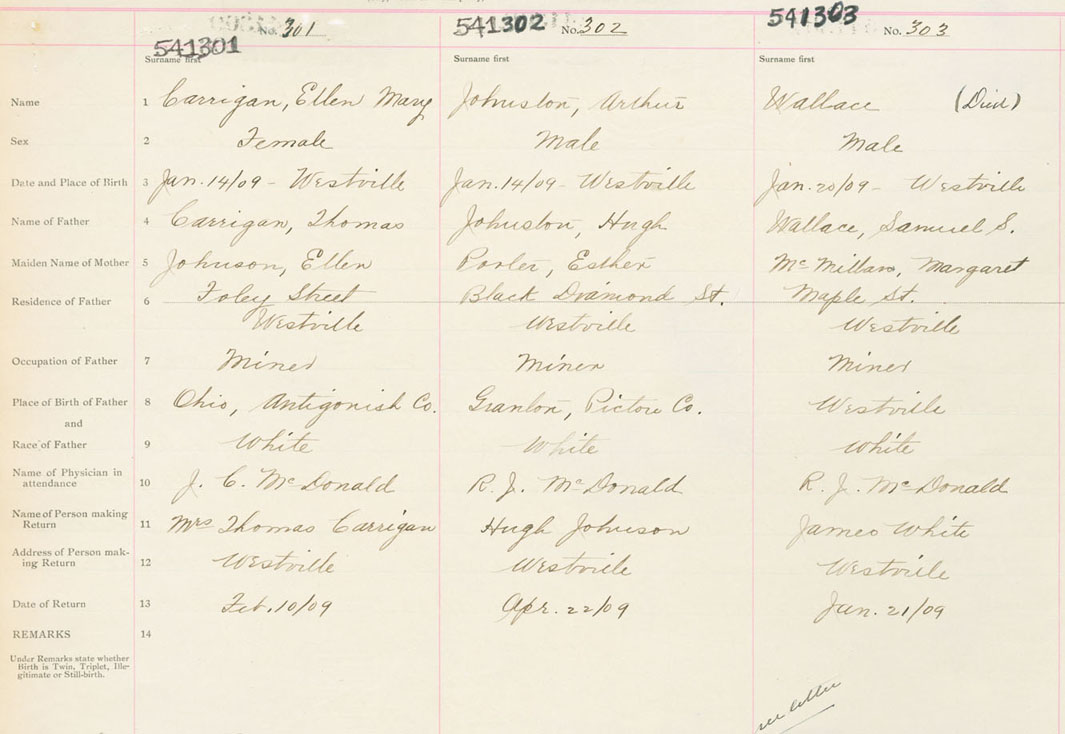 541301 No. 301 541302 No. 302 541303 No. 303
Surname first Surname first Surname first
Name 1 Carrigan, Ellen Mary Johnston, Arthur Wallace (Died)
Sex 2 Female Male Male
Date and Place of Birth 3 Jan. 14/09 - Westville Jan. 14/09 - Westville Jan. 20/09 - Westville
Name of Father 4 Carrigan, Thomas Johnston, Hugh Wallace, Samuel S.
Maiden Name of Mother 5 Johnson, Ellen Esther McMillan, Margaret
Residence of Father 6 Foley Street Black Diamond St. Maple St.
Westville Westville Westville
Occupation of Father 7 Miner Miner Miner
Place of Birth of Father 8 Ohio, Antigonish Co. Granton, Pictou Co. Westville
and
Race of Father 9 White White White
Name of Physician in
attendance 10 J. C. McDonald R. J. McDonald R. J. McDonald
Name of Person making
Return 11 Mrs Thomas Carrigan Hugh Johnson James White
Address of Person mak-
ing Return 12 Westville Westville Westville
Date of Return 13 Feb. 10/09 Apr. 22/09 Jan. 21/09
REMARKS 14
Under Remarks state whether
Birth is Twin, Triplet, Ille-
gitimate or Still-birth.